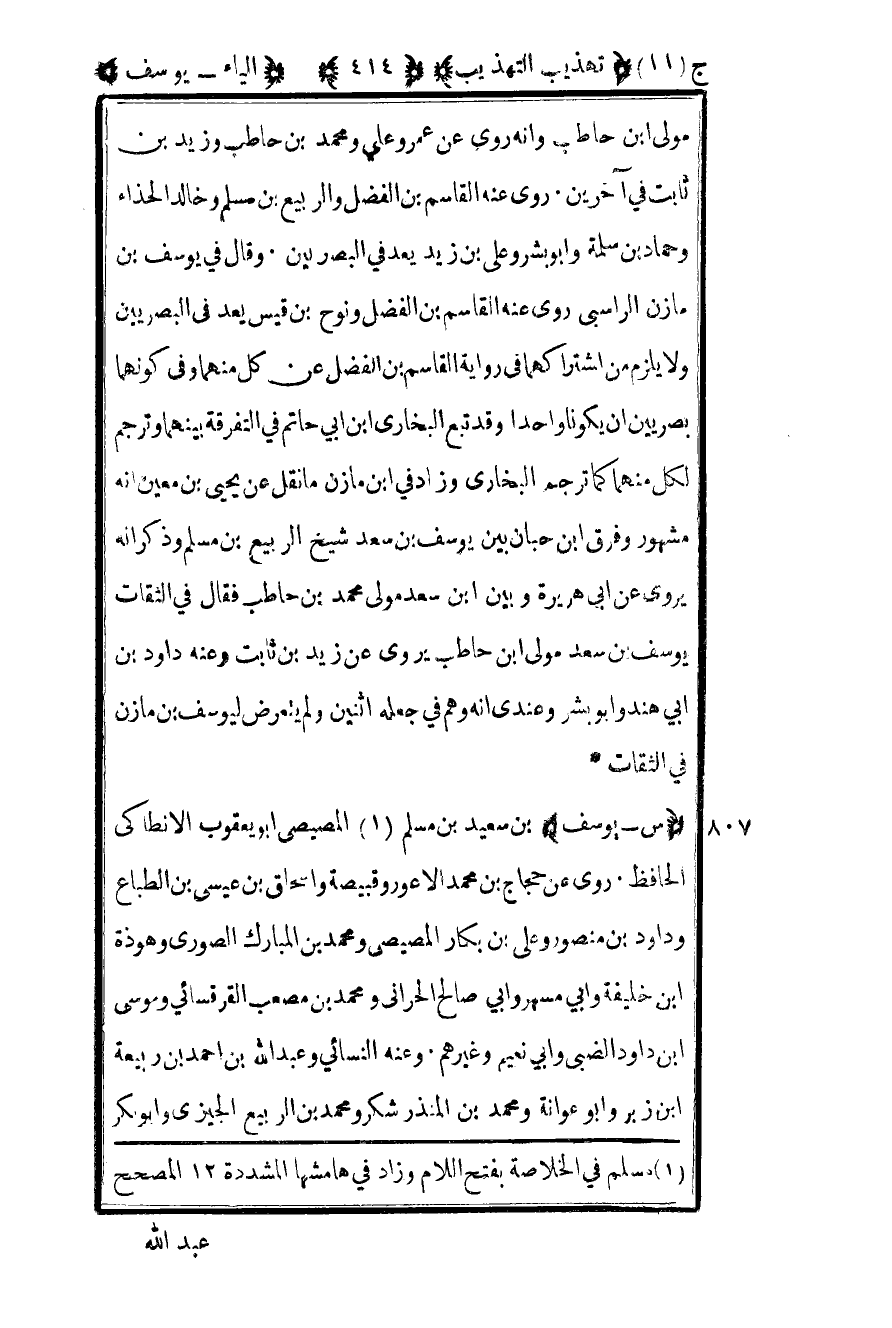 ج (١١) ﴿ تهذيب التهذيب ﴾ ﴿ ٤١٤ ﴾ ﴿ الياء ــ يوسف ﴾
مولى ابن حاطب وانه روى عن عمر وعلي ومحمد بن حاطب وزيد بن
ثابت في آخرين ٠ روى عنه القاسم بن الفضل والربيع بن مسلم وخالد الحذاء
وحماد بن سلمة وابو بشر وعلى بن زيد يعد في البصريين ٠ وقال في يوسف بن
مازن الراسبى روى عنه القاسم بن الفضل ونوح بن قيس يعد فى البصريين
ولا يلزم من اشتراكهما فى رواية القاسم بن الفضل عن كل منهما وفى كونهما
بصريين ان يكونا واحدا وقد تبع البخارى ابن ابي حاتم في التفرقة بينهما وترجم
لكل منهما كما ترجم البخارى وزاد في ابن مازن ما نقل عن يحيى بن معين انه
مشهور وفرق ابن حبان بين يوسف بن سعد شيخ الربيع بن مسلم وذكر انه
يروى عن ابي هريرة وبين ابن سعد مولى محمد بن حاطب فقال في الثقات
يوسف بن سعد مولى ابن حاطب يروى عن زيد بن ثابت وعنه داود بن
ابي هند وابو بشر وعندى انه وهم في جعله اثنين ولم يتعرض ليوسف بن مازن
في الثقات *
٨٠٧ ﴿ س ــ يوسف ﴾ بن سعيد بن مسلم (١) المصيصى ابو يعقوب الانطاكى
الحافظ ٠ روى عن حجاج بن محمد الاعور وقبيصة واسحاق بن عيسى بن الطباع
وداود بن منصور وعلى بن بكار المصيصى ومحمد بن المبارك الصورى وهوذة
ابن خليفة وابي مسهر وابي صالح الحرانى ومحمد بن مصعب القرقسائي وموسى
ابن داود الضبى وابي نعيم وغيرهم ٠ وعنه النسائي وعبد الله بن احمد بن ربيعة
ابن زبر وابو عوانة ومحمد بن المنذر شكر ومحمد بن الربيع الجيزى وابو بكر
(١) مسلم في الخلاصة بفتح اللام وزاد في هامشها المشددة ١٢ المصحح
عبد الله